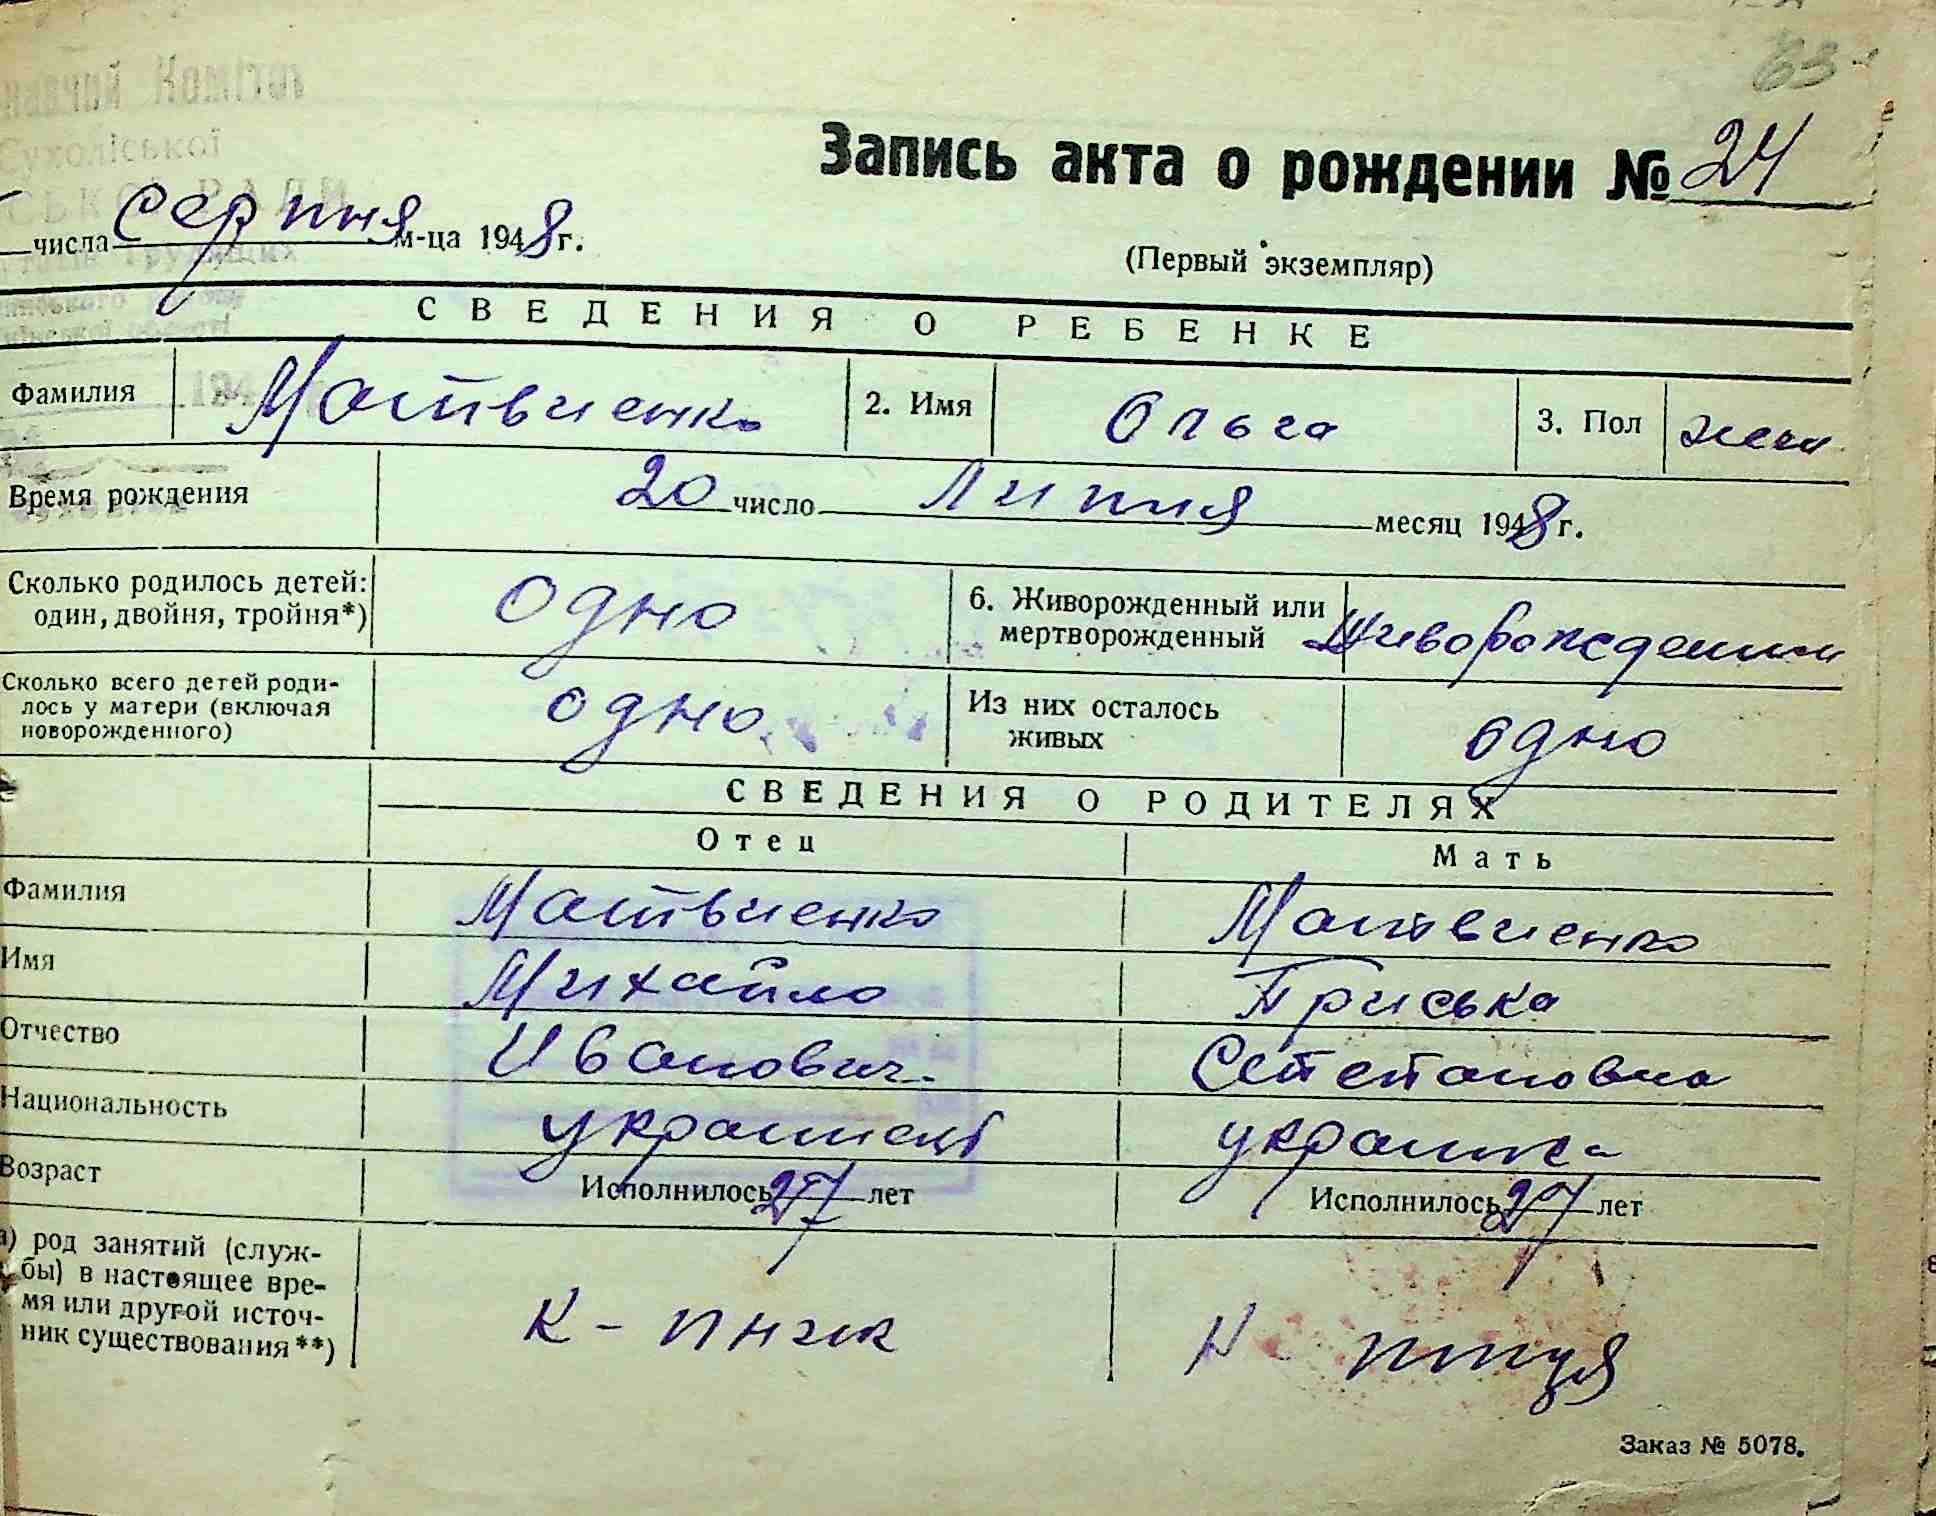 63
Комітет
Сухоліської
Запись акта о рождении № 24
числа Серпня м-ца 1948 г.
(Первый экземпляр)
СВЕДЕНИЯ О РЕБЕНКЕ
Фамилия Матвиенко 2. Имя Ольга 3. Пол жен
Время рождения 20 число Липня месяц 1948 г.
Сколько родилось детей: один, двойня, тройня*) одно 6. Живорожденный или мертворожденный живорожденый
Сколько всего детей роди-
лось у матери (включая
новорожденного) одно Из них осталось живых одно
СВЕДЕНИЯ О РОДИТЕЛЯХ
Отец Мать
Фамилия Матвиенко Матвиенко
Имя Михайло Приська
Отчество Иванович Стетановна
Национальность украинец украинка
Возраст Исполнилось 27 лет Исполнилось 27 лет
а) род занятий (служ-
бы) в настоящее вре-
мя или другой источ-
ник существования**) к-пник к-пниця
Заказ № 5078.